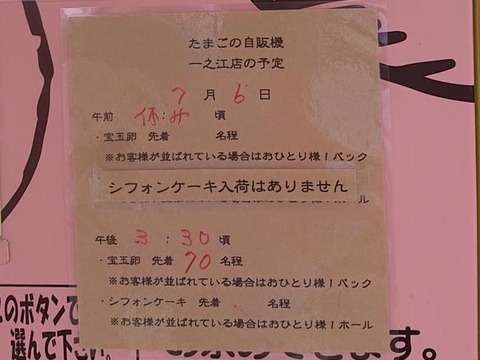 たまごの自販機
一之江店の予定
7月6日
午前 休:み 頃
・宝玉卵 先着 名程
※お客様が並ばれている場合はおひとり様1パック
シフォンケーキ入荷はありません
午後 3:30頃
・宝玉卵 先着 70 名程
※お客様が並ばれている場合はおひとり様1パック
・シフォンケーキ 先着 名程
※お客様が並ばれている場合はおひとり様1ホール
のボタンで
選んで下さい。
ます。